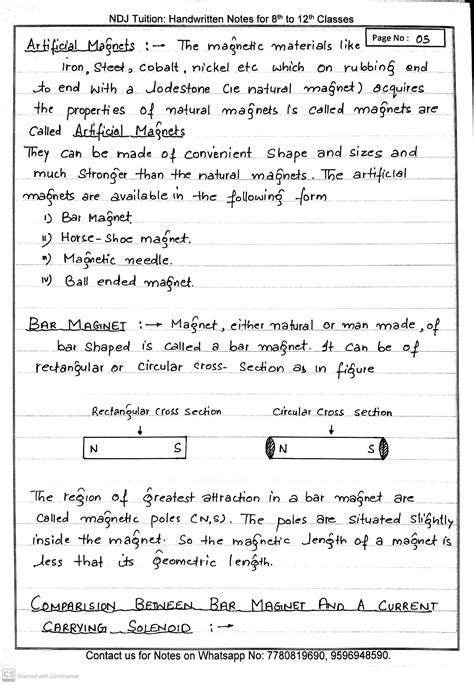 NDJ Tuition: Handwritten Notes for 8th to 12th Classes
Page No: 05
Artificial Magnets :→ The magnetic materials like
iron, Steel, cobalt, nickel etc which on rubbing end
to end with a lodestone (ie natural magnet) acquires
the properties of natural magnets is called magnets are
called Artificial Magnets
They can be made of convenient Shape and sizes and
much Stronger than the natural magnets. The artificial
magnets are available in the following form
i) Bar Magnet.
ii) Horse-Shoe magnet.
iii) Magnetic needle.
iv) Ball ended magnet.
BAR MAGNET :→ Magnet, either natural or man made, of
bar Shaped is called a bar magnet. It can be of
rectangular or circular cross-section as in figure
Rectangular Cross Section Circular Cross Section
N S N S
The region of greatest attraction in a bar magnet are
called magnetic poles (N,S). The poles are situated slightly
inside the magnet. So the magnetic length of a magnet is
less that its geometric length.
COMPARISION BETWEEN BAR MAGNET AND A CURRENT
CARRYING SOLENOID :→
Contact us for Notes on Whatsapp No: 7780819690, 9596948590.
CS Scanned with CamScanner